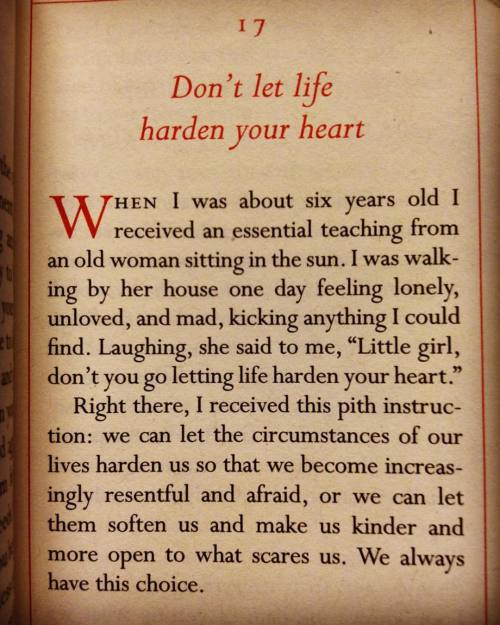 17
Don't let life
harden your heart
WHEN I was about six years old I
received an essential teaching from
an old woman sitting in the sun. I was walk-
ing by her house one day feeling lonely,
unloved, and mad, kicking anything I could
find. Laughing, she said to me, “Little girl,
don't you go letting life harden your heart.”
Right there, I received this pith instruc-
tion: we can let the circumstances of our
lives harden us so that we become increas-
ingly resentful and afraid, or we can let
them soften us and make us kinder and
more open to what scares us. We always
have this choice.